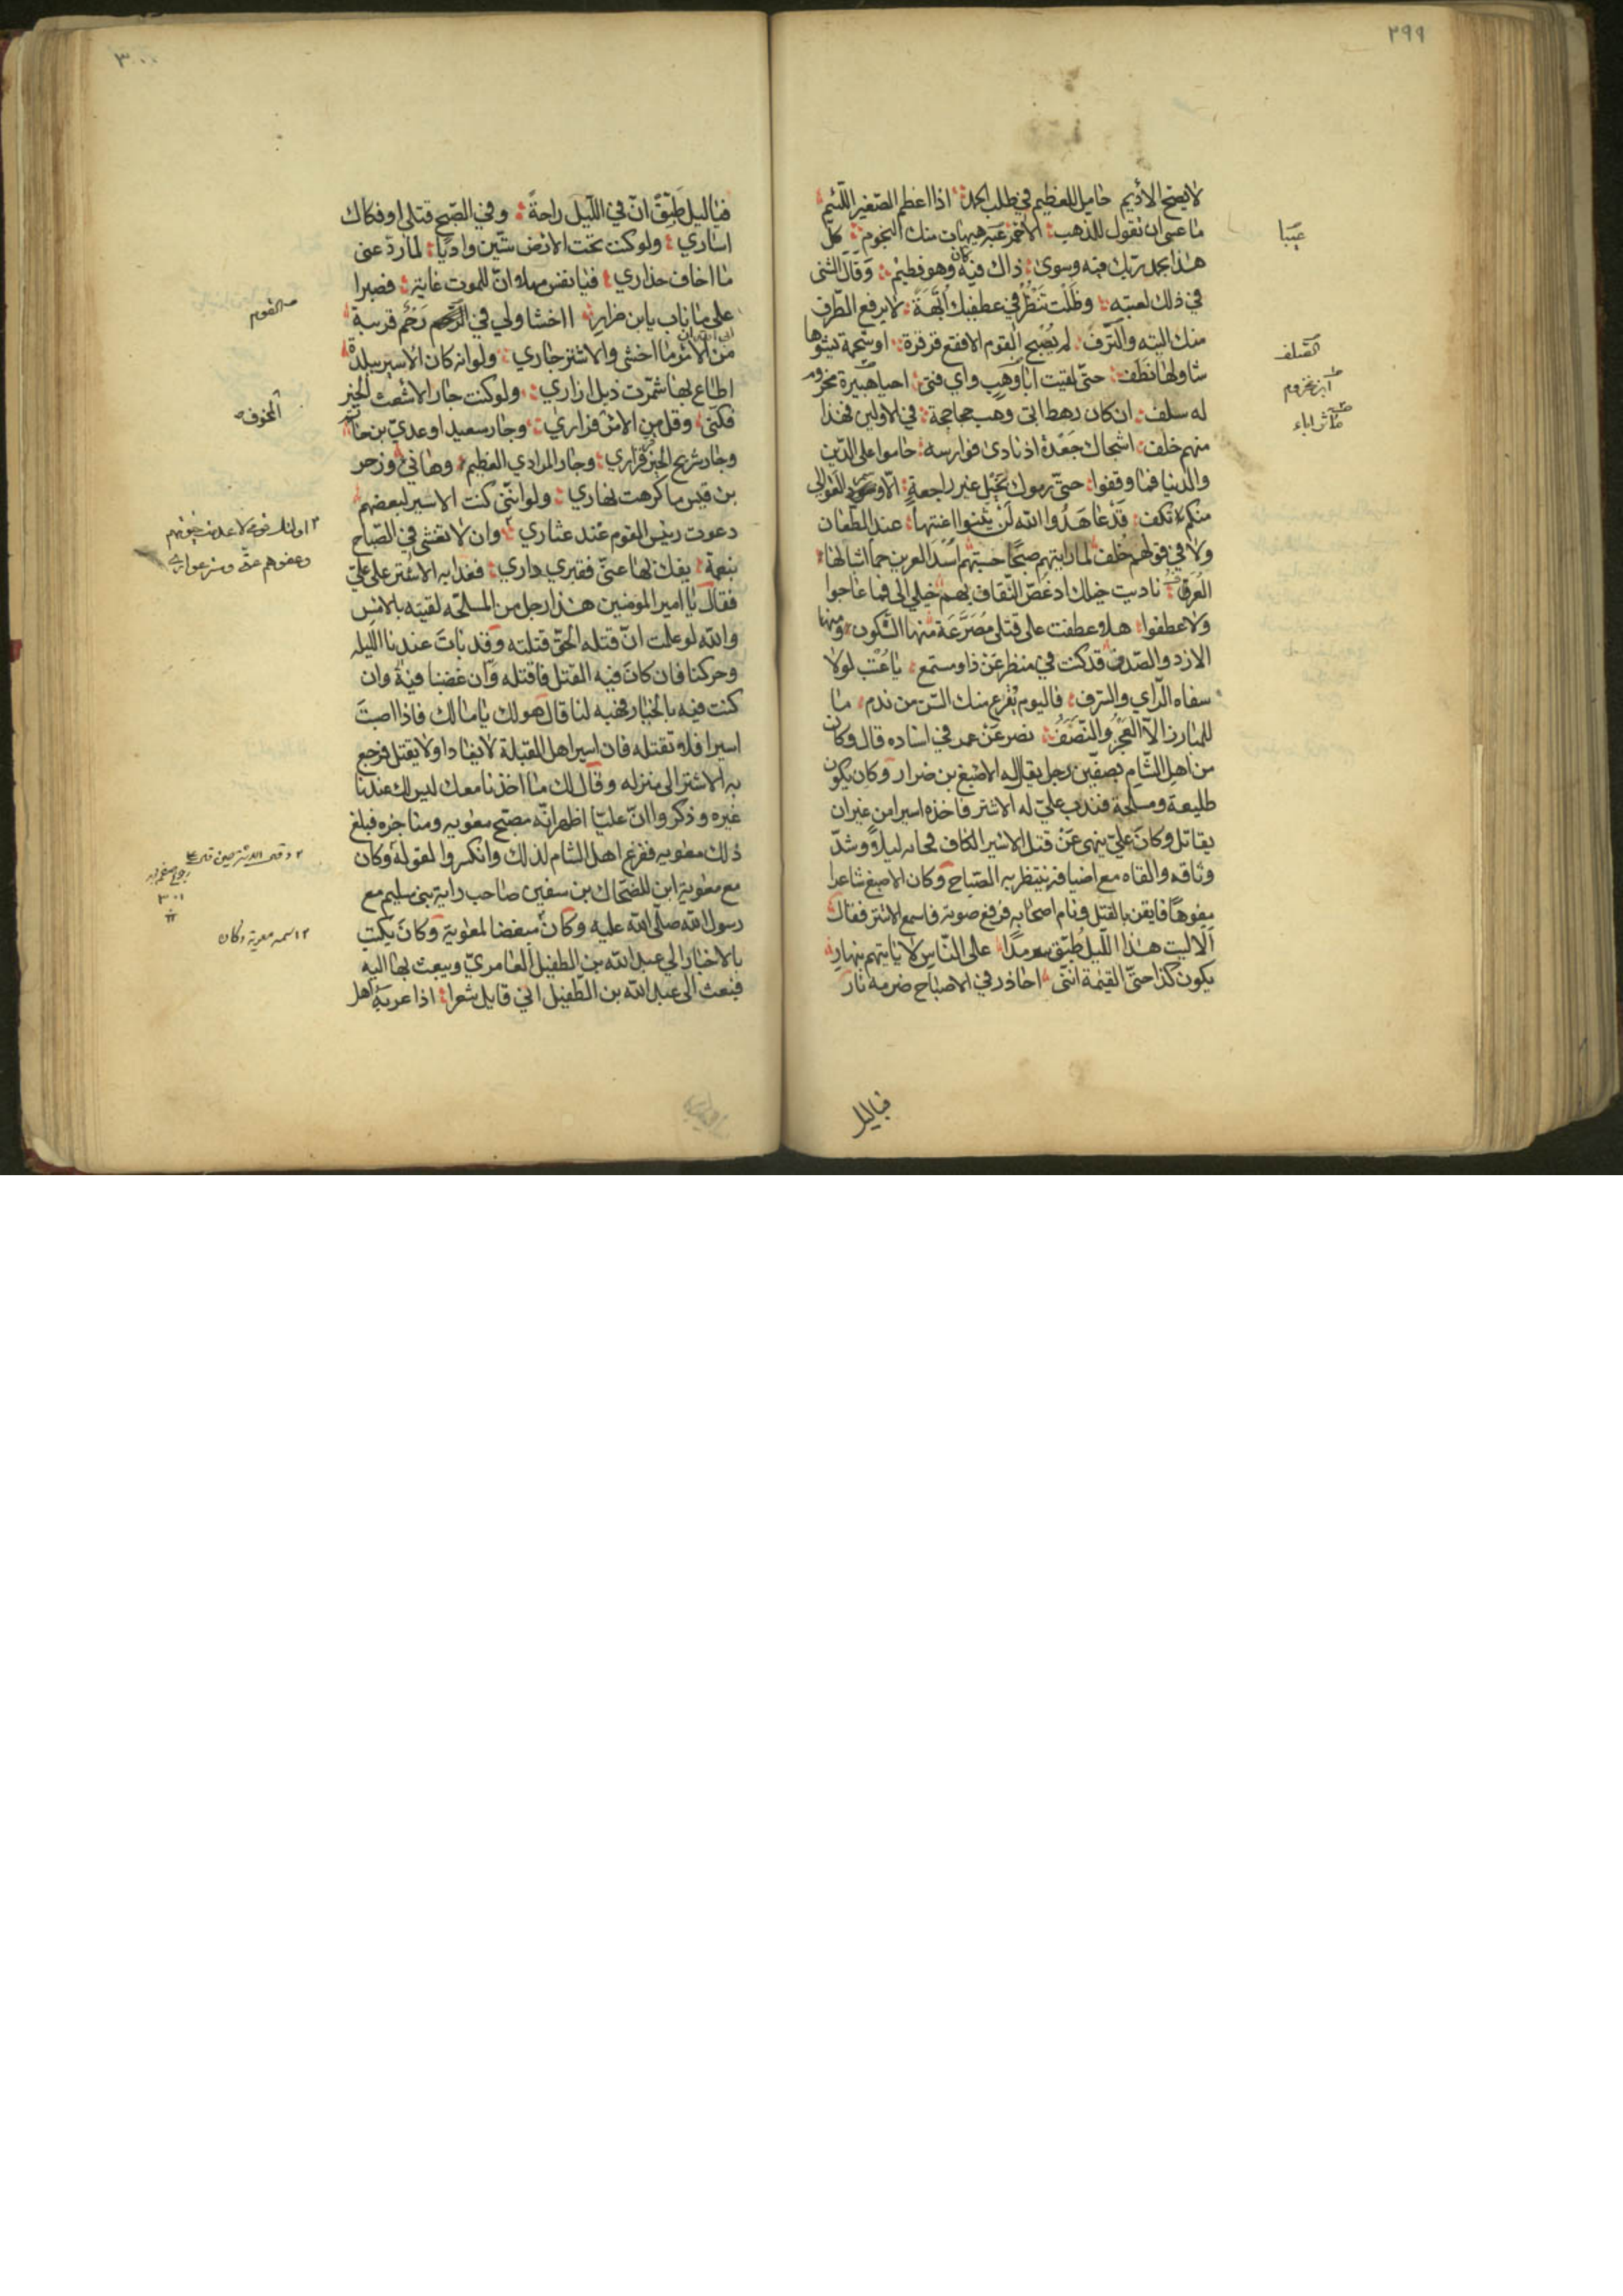 ٢٩٩
لا يصح الأديم حامل للعظيم في طلب الحمد اذا اعظم الصغير اللئيم
ما عسى ان تقول للذهب الأحمر عيبه هيهات منك النجوم كل
هذا بحمد ربك فيه وسوى ذاك فيه كان وهو فطيم وقال الشنى
في ذلك لعتبه وظلت تنظر في عطفيك أبهة لا يرفع الطرف
منك التيه والترف لم يصبح القوم الا فقع قرقرة او شحمة يشوها
شاو لها نطف حتى لقيت ابا وهب واي فتى احيا هبيرة مخزوم
له سلف ان كان رهط ابى وهب جحاجحة في الاولين فهذا
منهم خلف اشجاك جعدة اذ نادى فوارسه حاموا على الدين
والدنيا فما وقفوا حتى رموك بخيل غير راجعة الا وسمر العوالي
منكم تكف قد عاهدوا الله لن يثنوا اعنتها عند الطعان
ولا في قولهم خلف لما رايتهم صبحا حسبتهم اسد العرين حما اشبالها
الغرف ناديت خيلك اذ غص الثقاف بهم خيلي الى فما عاجوا
ولا عطفوا هلا عطفت على قتلى مصرعة منها السكون ومنها
الازد والصدف قد كنت في منظر عن ذا ومستمع يا عتب لولا
سفاه الراي والسرف فاليوم يقرع منك السن من ندم ما
للمبارز الا العجز والنصف نصر عن عمر في اسناده قال وكان
من اهل الشام بصفين رجل يقال له الاصبغ بن ضرار وكان يكون
طليعة ومسلحة فندب علي له الاشتر فاخذه اسيرا من غير ان
يقاتل وكان علي ينهى عن قتل الاسير الكاف فجاء به ليلا وشد
وثاقه والقاه مع اضيافه ينتظر به الصباح وكان الاصبغ شاعرا
مفوها فايقن بالقتل ونام اصحابه فرفع صوته فاسمع الاشتر فقال
ألا ليت هذا الليل طبق سرمدا على الناس لا ياتيهم بنهار
يكون كذا حتى القيمة اننى احاذر في الاصباح ضرمة نار
فيا ليل
عيبا
السلف
ابن مخزوم
ماثر اباء
٣٠٠
فيا ليل طبق ان في الليل راحة وفي الصبح قتلى او فكاك
اساري ولو كنت تحت الارض ستين واديا لما رد عنى
ما اخاف حذاري فيا نفس مهلا ان للموت غاية فصبرا
على ما ناب يا ابن ضرار ااخشا ولي في رحم قريبة
من الامر ما اخشى والاشتر جاري ولو انه كان الاسير ببلدة
اطاع بها شمرت ذيل ازاري ولو كنت جار الاشعث الخير
فكنى وقل من الامر فراري وجار سعيد او عدي بن حاتم
وجار شريح الخير قراري وجار المرادي العظيم وهاني وزحر
بن قيس ما كرهت نهاري ولو اننى كنت الاسير لبعضهم
دعوت رئيس القوم عند عثاري وان لا تغشى في الصباح
بنعمة يفك لها عنى فقيري داري فغدا به الاشتر على علي
فقال يا امير المؤمنين هذا رجل من المسلحه لقيته بالامس
والله لو علمت ان قتله الحق قتلته وقد بات عندنا الليله
وحركنا فان كان فيه القتل فاقتله وان غضبنا فيه وان
كنت فيه بالخيار فهبه لنا قال هو لك يا مالك فاذا اصبت
اسيرا فلا تقتله فان اسير اهل القبلة لا يفادا ولا يقتل فرجع
به الاشتر الى منزله وقال لك ما اخذنا معك ليس لك عندنا
غيره وذكروا ان عليا اظهر انه مصبح معويه ومناجزه فبلغ
ذلك معويه ففزع اهل الشام لذلك وانكسروا لقوله وكان
مع معوية ابن للضحاك بن سفين صاحب راية بني سليم مع
رسول الله صلى الله عليه وكان مبغضا لمعوية وكان يكتب
بالاخبار الي عبد الله بن الطفيل العامري ويبعث بها اليه
فبعث الى عبد الله بن الطفيل اني قايل شعرا اذا عر به اهل
القوم
المخوف
اولئك قومي لا عدمت حيوتهم
وعفوهم عنى وستر عواري
٣٠١
اسمه معوية وكان